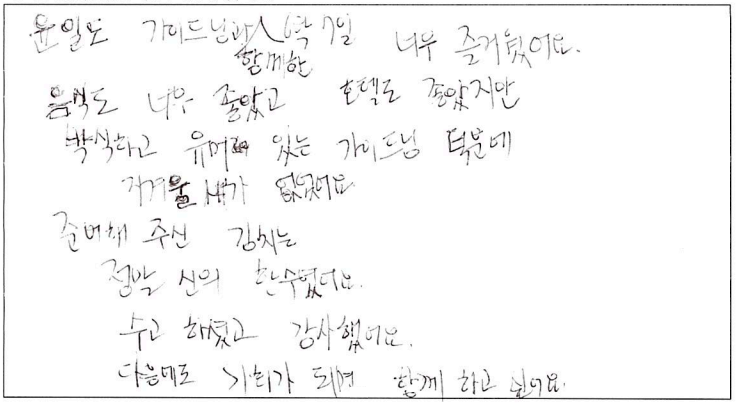 윤일도 가이드님과 함께한 6박 7일 너무 즐거웠어요.
음식도 너무 좋았고 호텔도 좋았지만
박식하고 유머 있는 가이드님 덕분에
지겨울 새가 없었어요
준비해 주신 김치는
정말 신의 한수였어요.
수고 하셨고 감사했어요.
다음에도 기회가 되면 함께 하고 싶어요.